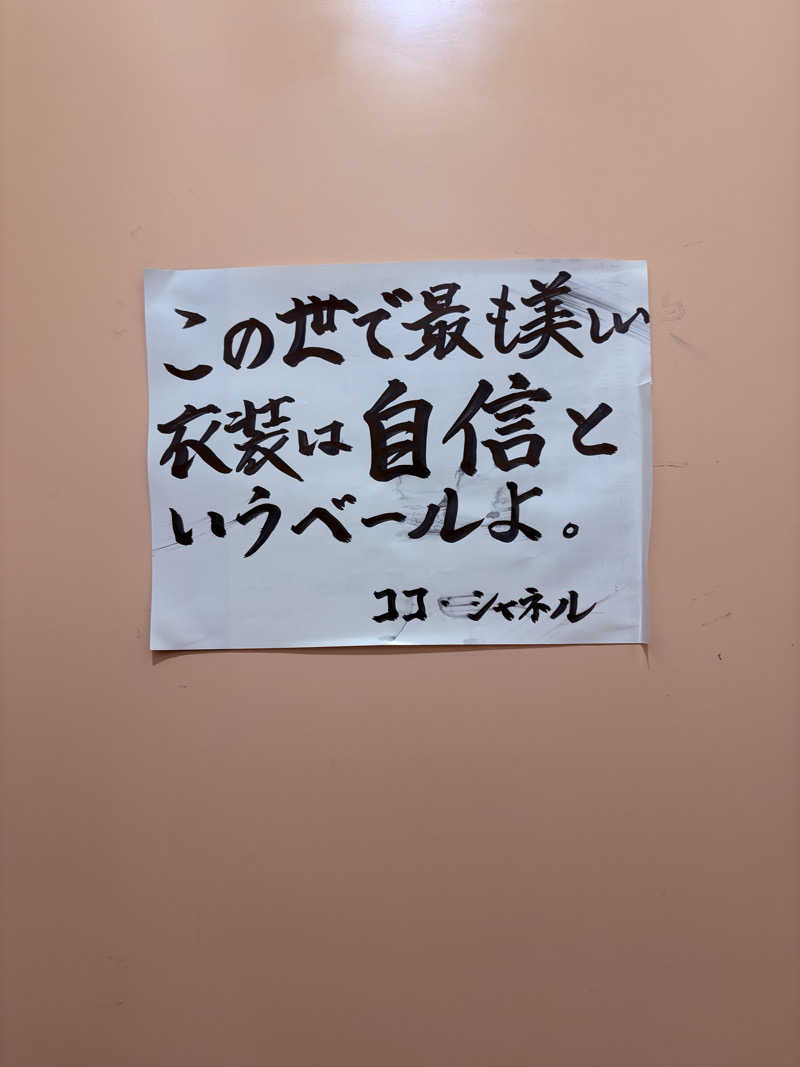 この世で最も美しい
衣装は自信と
いうベールよ。
ココ・シャネル